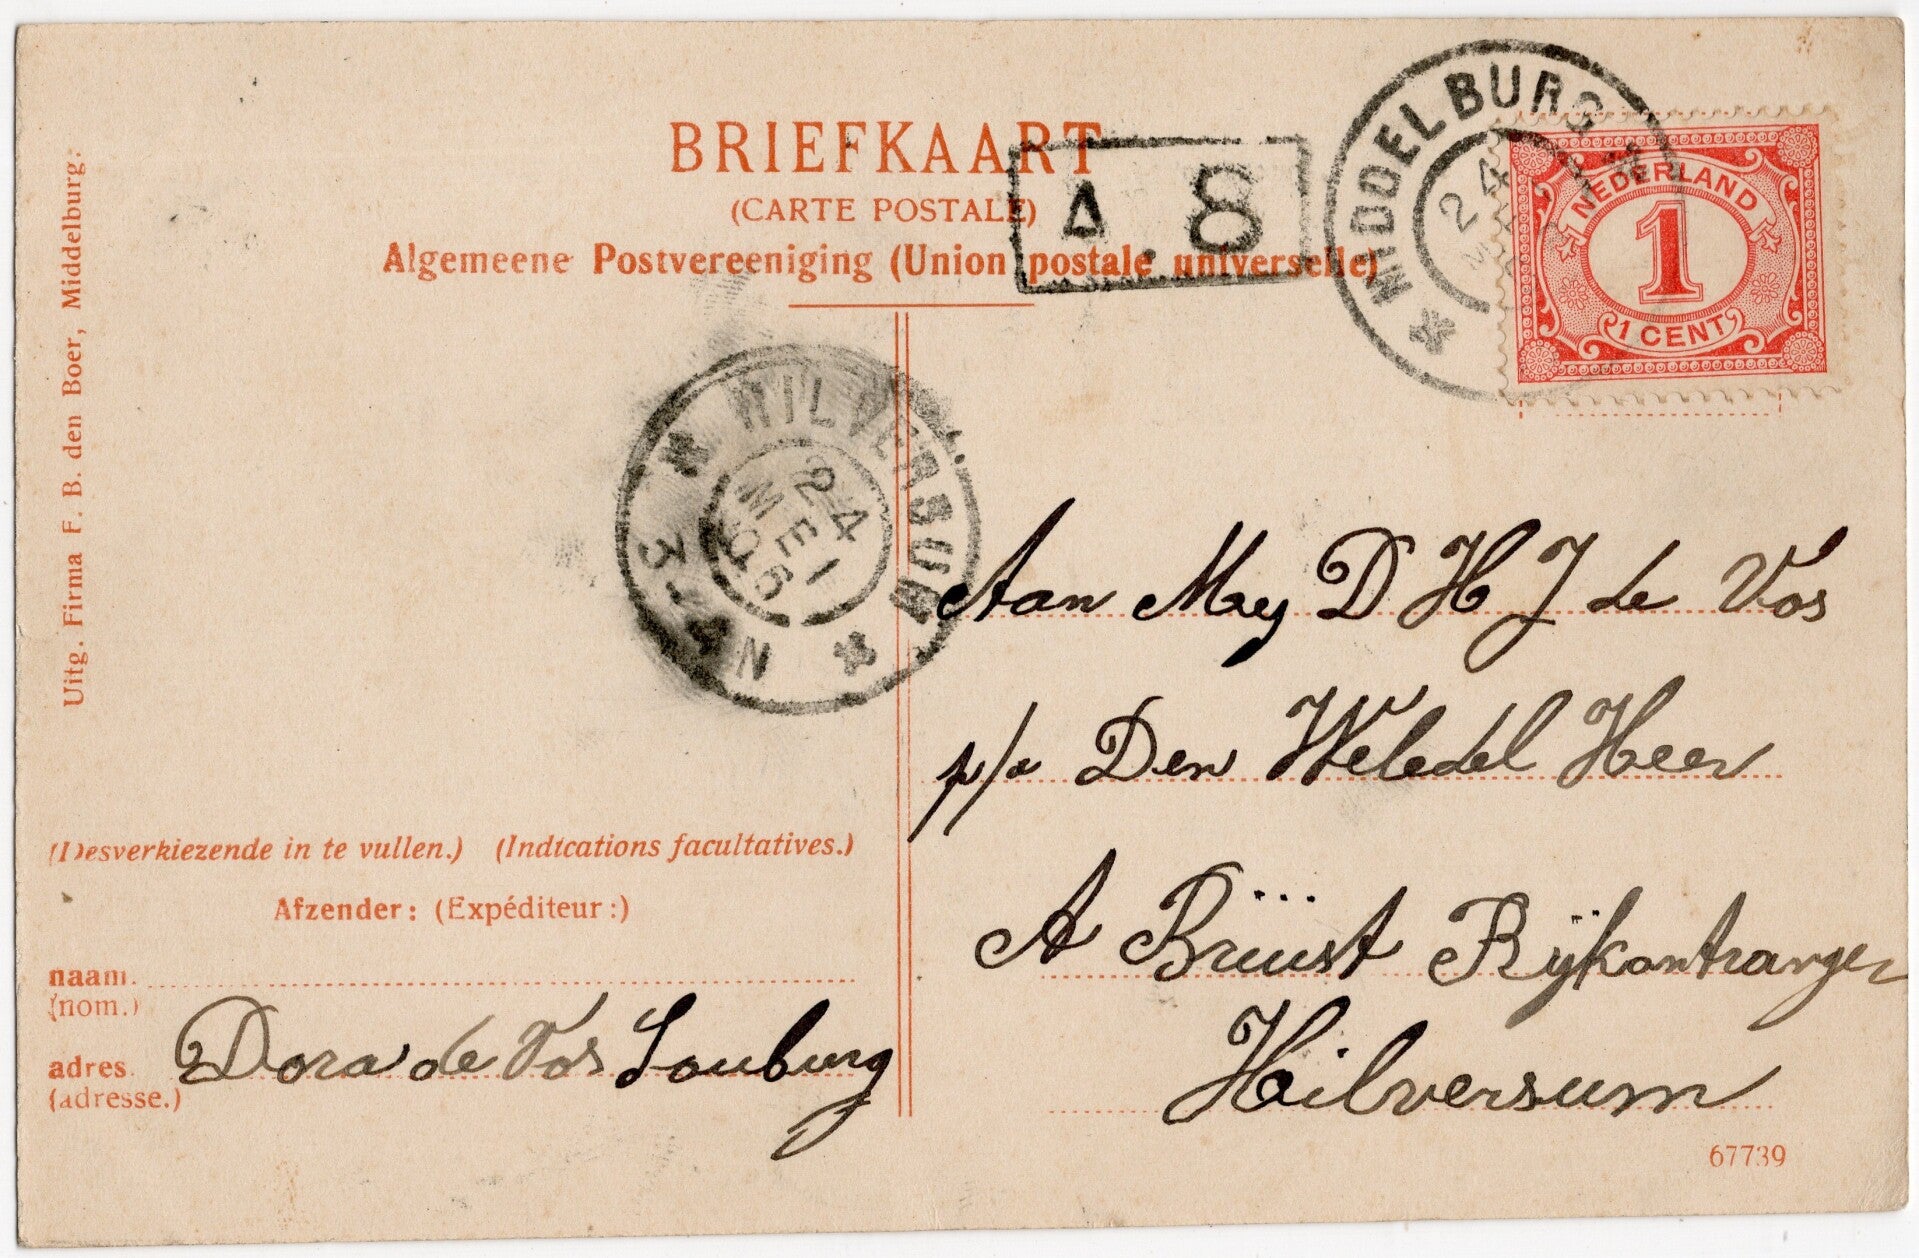 BRIEFKAART
(CARTE POSTALE)
Algemeene Postvereeniging (Union postale universelle)
A. 8
MIDDELBURG
24
NEDERLAND
1
1 CENT
HILVERSUM
24
MEI
06
3-4 N
Uitg. Firma F. B. den Boer, Middelburg.
Aan Mej D H J de Vos
p/a Den Weledel Heer
A Brüüst Rijkontvanger
Hilversum
(Desverkiezende in te vullen.) (Indications facultatives.)
Afzender: (Expéditeur:)
naam.
(nom.)
Dora de Vos Souburg
adres.
(adresse.)
67739